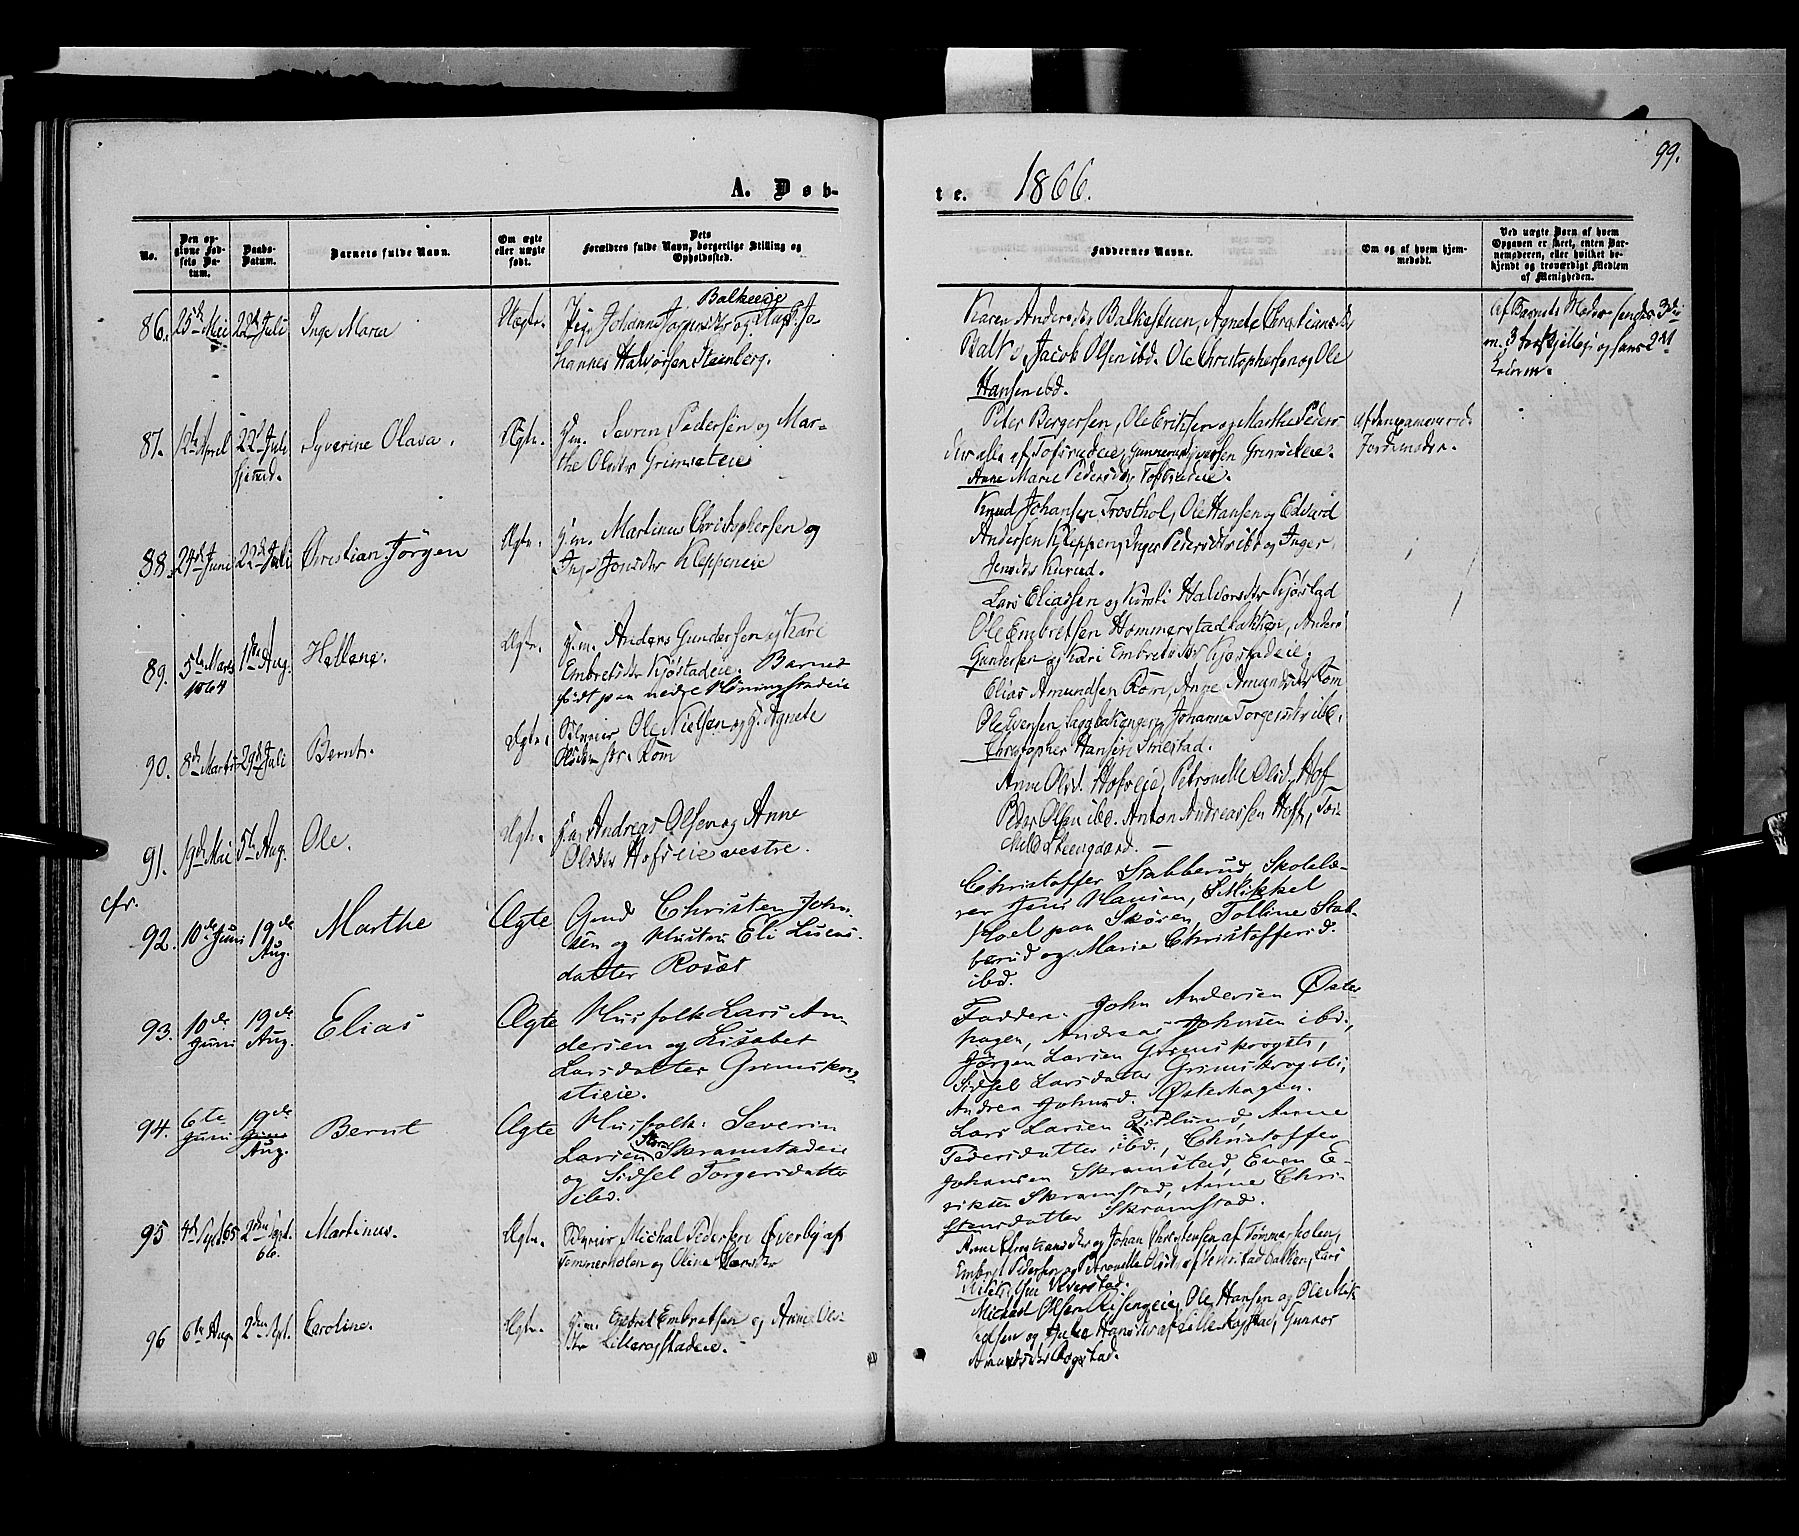 99.
A. Døb-
te. 1866.
No.
Den op-
givne Fød-
sels Da-
tum.
Daabs-
Datum.
Barnets fulde Navn.
Om ægte
eller uægte
født.
Dets
Forældres fulde Navn, borgerlige Stilling og
Opholdssted.
Faddernes Navne.
Om og af hvem hjem-
medøbt.
Ved uægte Børn af hvem
Opgaven er skeet, enten Bar-
nemoderen, eller hvilket be-
kjendt og troværdigt Medlem
af Menigheden.
86. 25de Mai 22de Juli Inge Maria Uægte.
Balkeeie
Pige Johanne og
hannes Halvorsen Steenberg.
Karen Andersdtr Balkestuen, Agnete Christiansdtr
Balke, Jacob Olsen ibd. Ole Christophersen og Ole
Hansen ibd.
Af Barnets Moder
87. 12te April 22de Juli Syverine Olava. Ægte.
Hm. Søvren Pedersen og Mar-
the Olsdtr Grimseteie
Peter Bergersen, Ole Eriksen og Marthe Peders-
dtr alle af Tofsrudeie, Syversen Grimseteie.
Anne Marie Pedersdtr Tofsrudeie.
Jordemoder.
88. 24de Juni 22de Juli Christian Jørgen Ægte.
Hm. Martinus Christophersen og
Inge Jonsdtr Kleppeneie
Knud Johansen Trosthol, Ole Hansen og Edvard
Andersen Kleppen, Inger Pedersdtr ibd og Inger
Jensdtr
89. 5te Marts 1864 1ste Aug. Hellene. Ægte.
Hm. Anders Gundersen og Kari
Embretsdtr Kjøstadeie. Barnet
født paa nedre Høningstadeie
Lars Eliassen og Kirsti Halvorsdtr Kjøstad
Ole Embretsen Hommerstadbakken, Anders
Gundersen og Kari Embretsdtr Kjøstadeie.
90. 8de Marts 29de Juli Bernt. Ægte.
Selveier Ole Nielsen og H. Agnete
Olsdtr Rom
Elias Amundsen Rom, Anne Amundsdtr Rom
Ole Evensen Johanne Torgersdtr ibd.
Christopher Hansen Smestad.
91. 19de Mai 5te Aug. Ole. Ægte.
Hm. Andreas Olsen og Anne
Olsdtr Hofseie vestre.
Anne Olsd. Hofseie, Petronelle Olsd. Hof
Peder Olsen ibd. Anton Andreassen Hof,
Steengaard.
cfr.
92. 10de Juni 19de Aug. Marthe Ægte
Gmd Christen John-
sen og Hustru Eli Lucas-
datter Rosæt
Christoffer Stabberud, Skolelæ-
rer Jens Hansen, Mikkel
Hoel paa Skøien, Tolline Stab-
berud og Marie Christoffersd.
ibd.
93. 10de Juni 19de Aug. Elias Ægte
Husfolk Lars An-
dersen og Lisabet
Larsdatter Grimskro-
stieie.
Faddere John Andersen Øster-
hagen, Andreas Johnsen ibd.,
Jørgen Larsen Grimskrogsti,
Sidsel Larsdatter Grimskrogsti,
Andrea Johnsd. Østerhagen.
94. 6te Juni 19de Aug. Bernt Ægte
Husfolk: Severin
Larsen Skramstadeie
og Sidsel Torgersdatter
ibd.
Lars Larsen Anne
Pedersdatter ibd., Christoffer
Johansen Skramstad, Even E-
riksen Skramstad, Anne Chri-
stensdatter Skramstad.
95 4de Sept. 65 2den Sept. 66. Martinus. Ægte.
Selveier Michal Pedersen Øverby af
Tømmerholen og Oline Larsdtr
Anne Christiansdtr og Johan Christensen af Tømmerholen,
Embret Pedersen og Petronelle Olsdtr af Veverstadbakken, Lars
Veverstad.
96 6te Aug. 2den Sept. Caroline. Ægte.
Hm. Embret Embretsen og Anne Ols-
dtr Lillerogstadeie.
Michael Olsen Risengeie, Ole Hansen og Ole Mik-
kelsen og Julie Hansdtr af Lille Rogstad, Gunnor
Amundsdtr Rogstad.